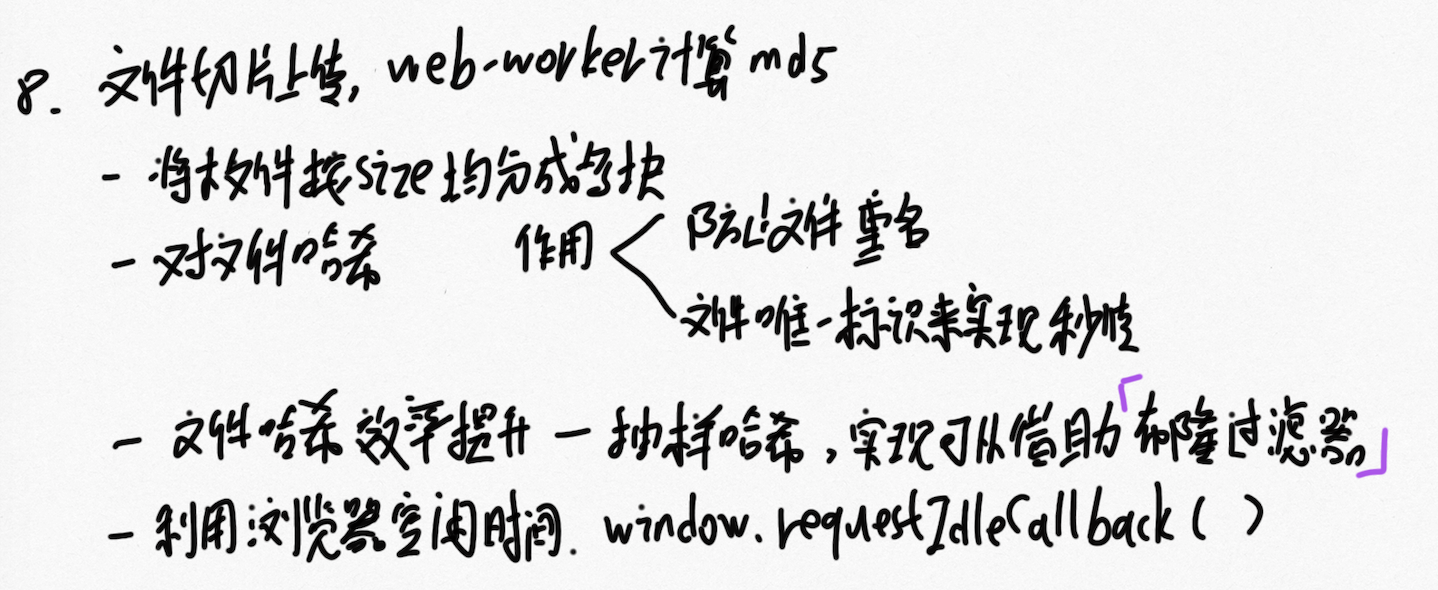 8. 文件切片上传, web-worker计算md5
- 将大文件按size均分成多块
- 对文件哈希 作用 防止文件重名
文件唯一标识来实现秒传
- 文件哈希效率提升 - 抽样哈希, 实现可以借助「布隆过滤器」
- 利用浏览器空闲时间. window.requestIdleCallback( )